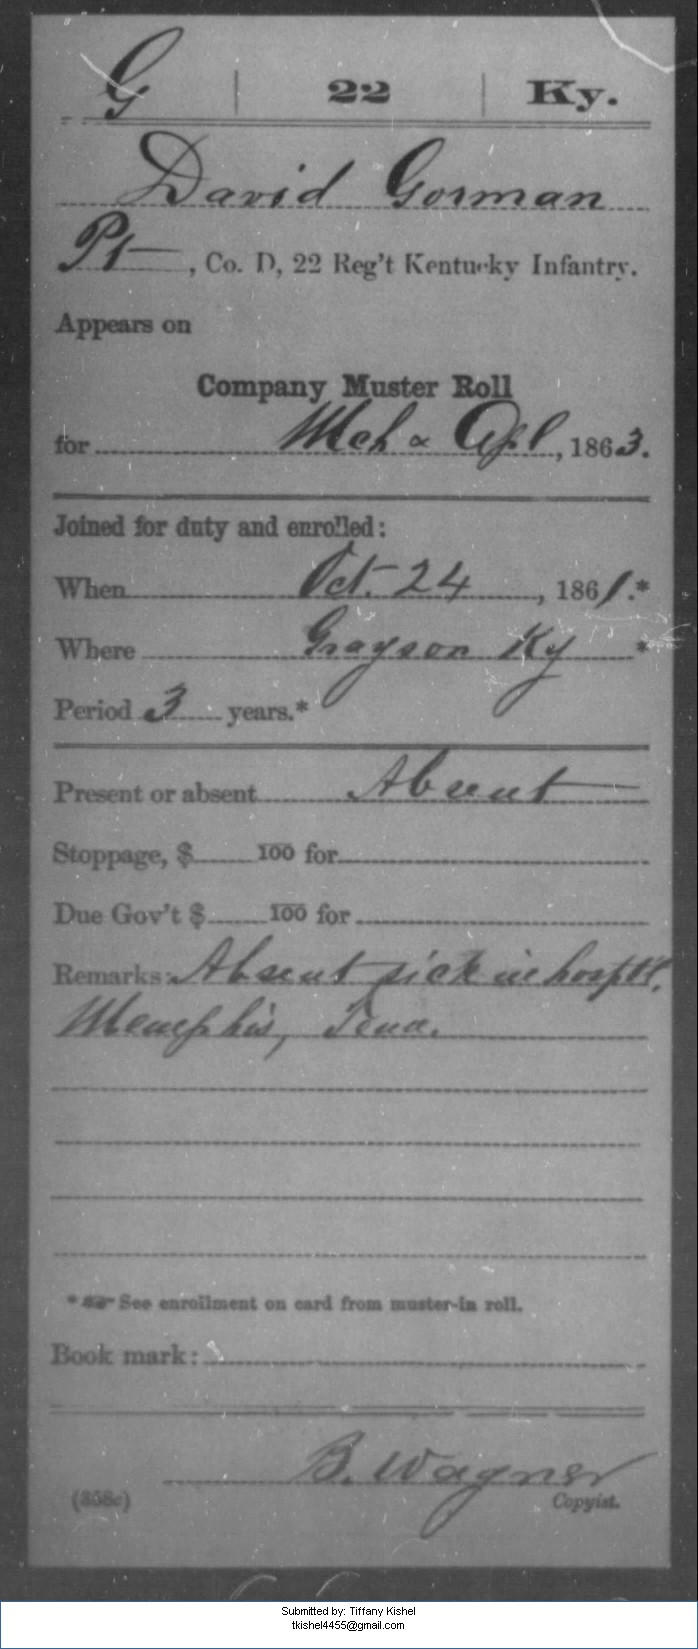 G | 22 | Ky.
David Gorman
Pt, Co. D, 22 Reg't Kentucky Infantry.
Appears on
Company Muster Roll
for Mch & Apl, 1863.
Joined for duty and enrolled:
When Oct. 24, 1861.*
Where Grayson Ky *
Period 3 years.*
Present or absent Absent
Stoppage, $ 100 for
Due Gov't $ 100 for
Remarks: Absent sick in hosptl,
Memphis, Tenn.
* See enrollment on card from muster-in roll.
Book mark:
B. Wagner
(358c) Copyist.
Submitted by: Tiffany Kishel
tkishel4455@gmail.com